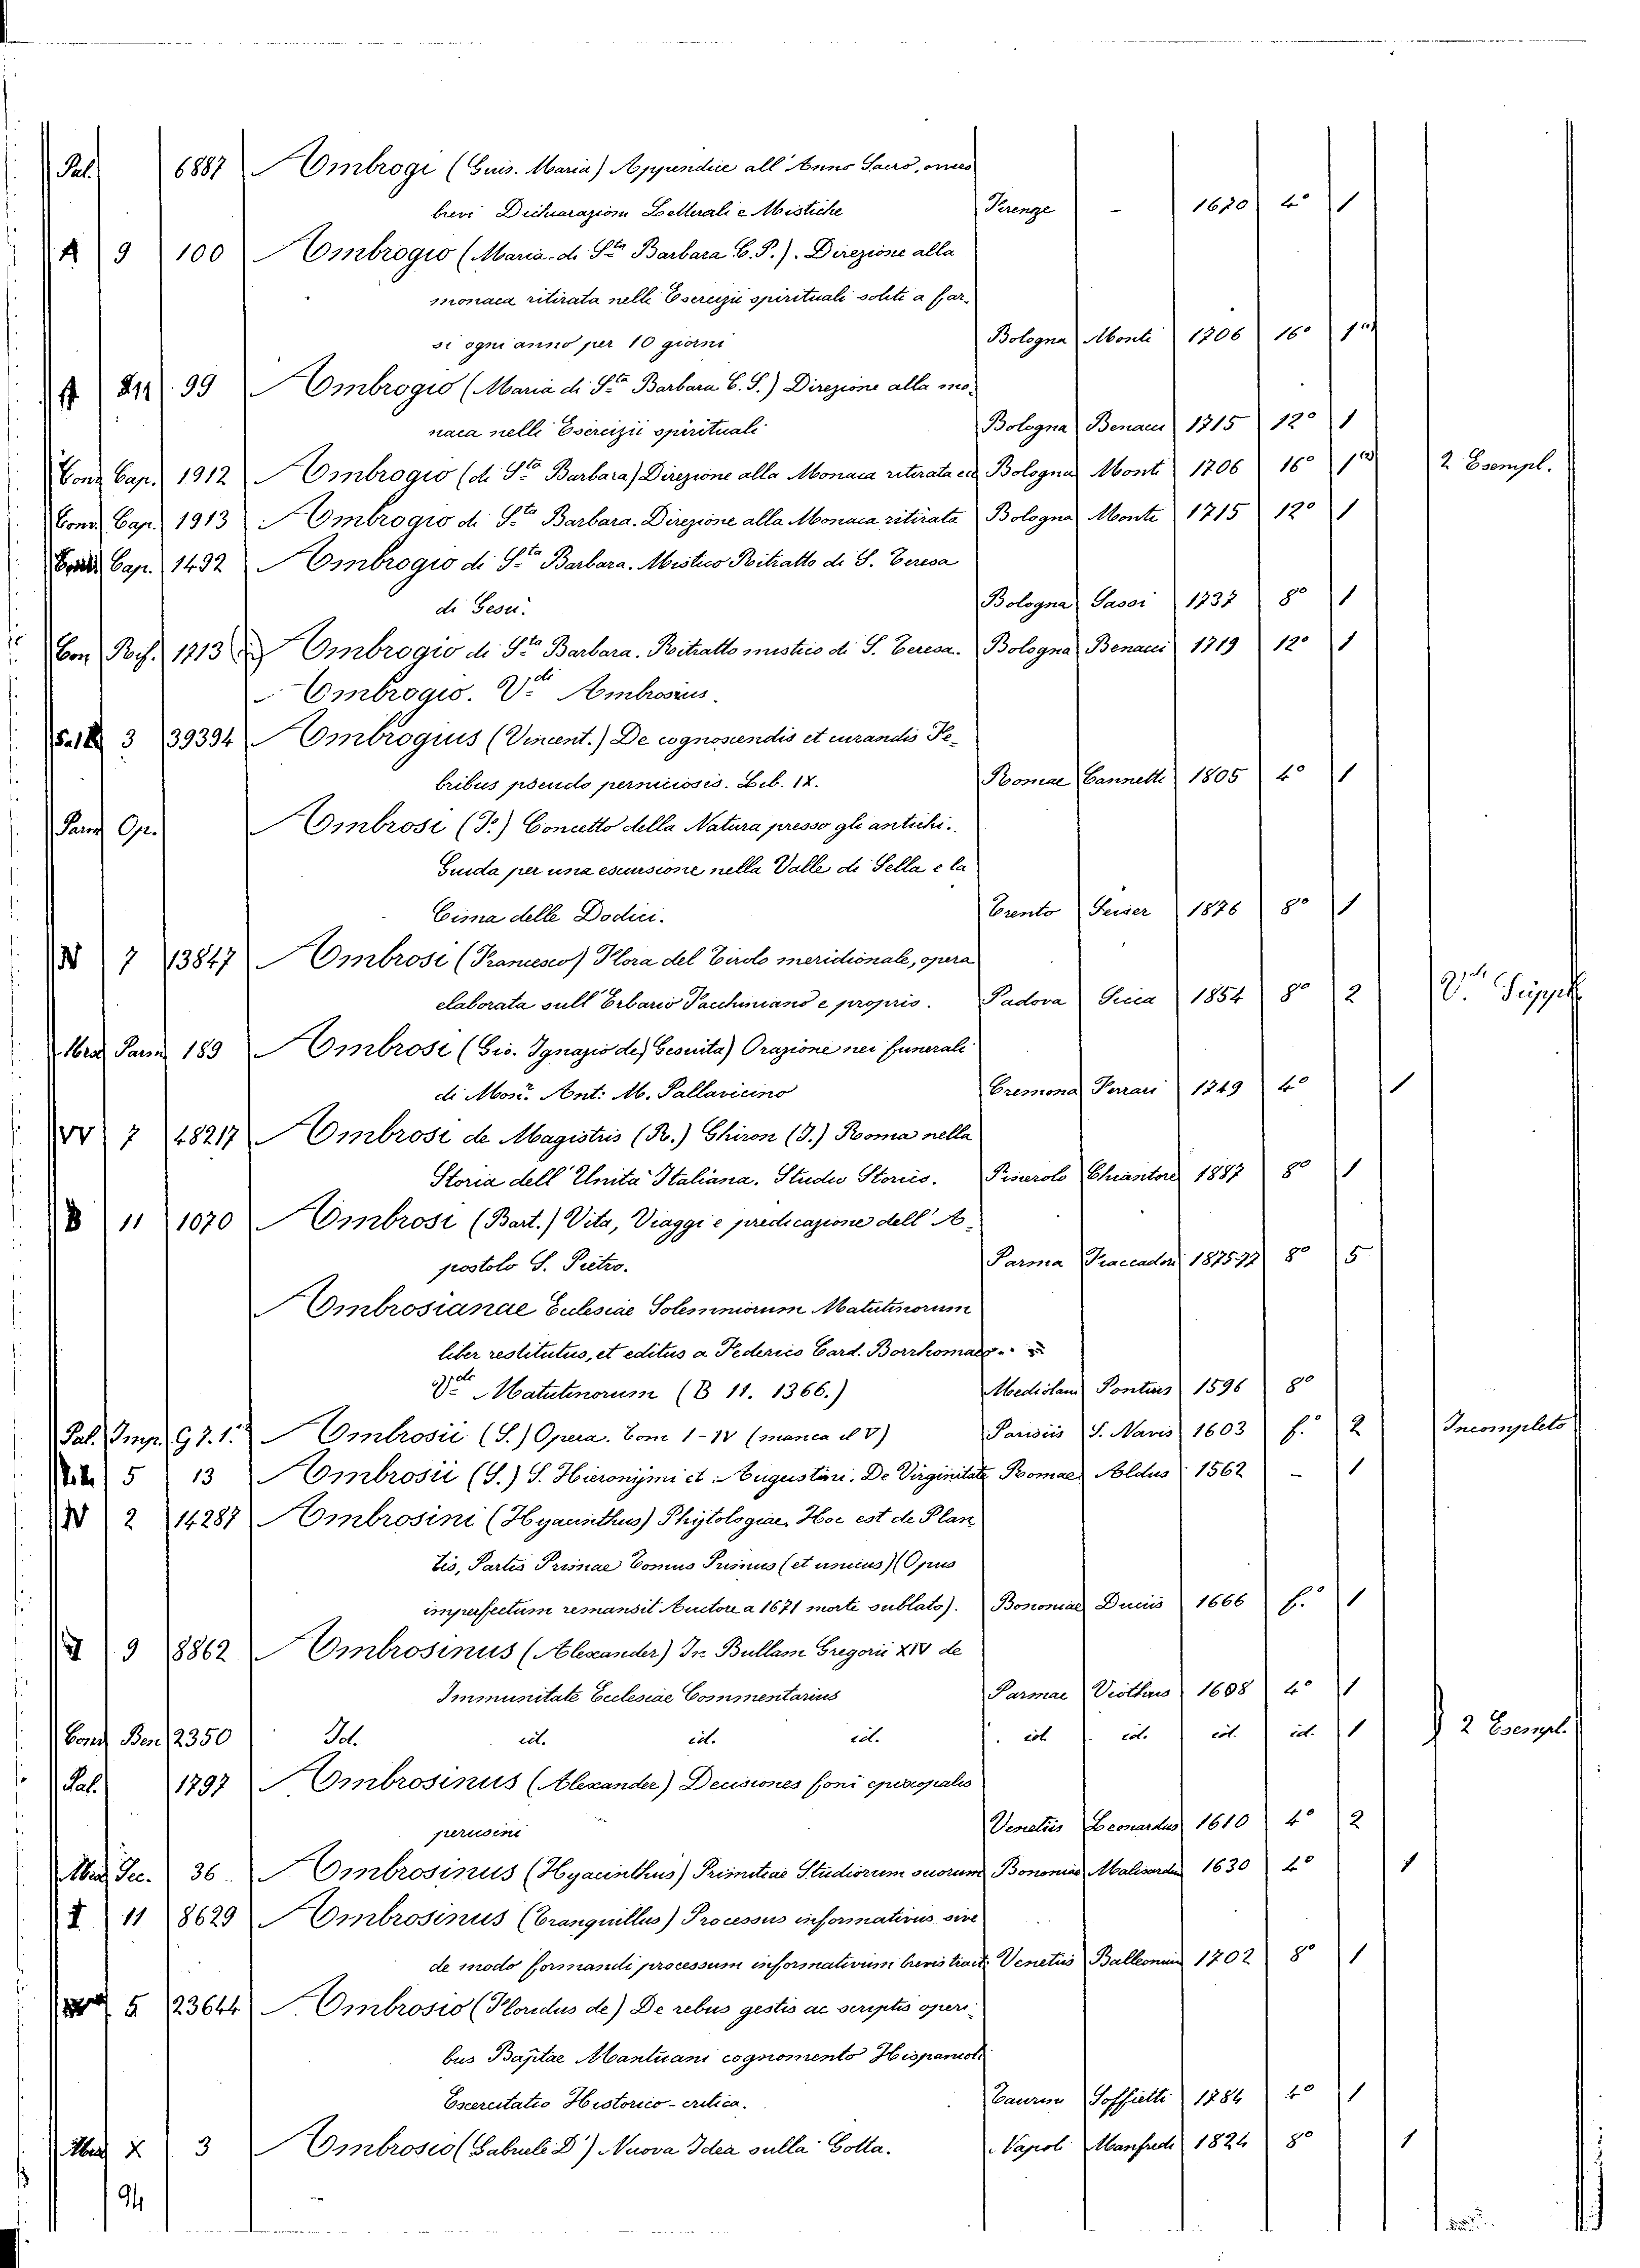 Pal. 6887 Ambrogi (Gius. Maria) Appendice all'Anno Sacro, overo
brevi Dichiarazioni Letterali e Mistiche Firenze - 1670 4° 1
A 9 100 Ambrogio (Maria di Sta Barbara C. S.). Direzione alla
monaca ritirata nelli Esercizii spirituali soliti a far-
si ogni anno per 10 giorni Bologna Monti 1706 16° 1
A 99 Ambrogio (Maria di Sta Barbara C. S.) Direzione alla mo-
naca nelli Esercizii spirituali Bologna Benacci 1715 12° 1
Conv Cap. 1912 Ambrogio (di Sta Barbara) Direzione alla Monaca ritirata ecc Bologna Monti 1706 16° 1 2 Esempl.
Conv. Cap. 1913 Ambrogio di Sta Barbara. Direzione alla Monaca ritirata Bologna Monti 1715 12° 1
Cap. 1492 Ambrogio di Sta Barbara. Mistico Ritratto di S. Teresa
di Gesù. Bologna Sassi 1737 8° 1
Con Rif. 1713 Ambrogio di Sta Barbara. Ritratto mistico di S. Teresa. Bologna Benacci 1719 12° 1
Ambrogio. Vdi Ambrosius.
3 39394 Ambrogius (Vincent.) De cognoscendis et curandis Fe-
bribus pseudo perniciosis. Lib. IX. Romae Cannetti 1805 4° 1
Parm Op. Ambrosi (F.) Concetto della Natura presso gli antichi.
Guida per una escursione nella Valle di Sella e la
Cima delle Dodici. Trento Seiser 1876 8° 1
N 7 13847 Ambrosi (Francesco) Flora del Tirolo meridionale, opera
elaborata sull'Erbario Facchiniano e proprio. Padova Sicca 1854 8° 2 Vdi Suppl
Misc Parm 189 Ambrosi (Gio. Ignazio de, Gesuita) Orazione nei funerali
di Mons. Ant: M. Pallavicino Cremona Ferrari 1749 4° 1
VV 7 48217 Ambrosi de Magistris (R.) Ghiron (I.) Roma nella
Storia dell'Unità Italiana. Studio Storico. Pinerolo Chiantore 1887 8° 1
B 11 1070 Ambrosi (Bart.) Vita, Viaggi e predicazione dell'A-
postolo S. Pietro. Parma Fiaccadori 1875-77 8° 5
Ambrosianae Eclesiae Solemniorum Matutinorum
liber restitutus, et editus a Federico Card. Borrhomaeo.
Vdi Matutinorum (B 11. 1366.) Mediolani Pontius 1596 8°
Pal. Imp. G 7. 1. Ambrosii (S.) Opera. Tom 1-IV (manca il V) Parisiis S. Navis 1603 f.° 2 Incompleto
5 13 Ambrosii (S.) S. Hieronymi et Augustini. De Virginitate Romae Aldus 1562 - 1
N 2 14287 Ambrosini (Hyacinthus) Phytologiae, Hoc est de Plan-
tis, Partis Primae Tomus Primus (et unicus) (Opus
imperfectum remansit Auctore a 1671 morte sublato). Bononiae Duciis 1666 f.° 1
9 8862 Ambrosinus (Alexander) In Bullam Gregorii XIV de
Immunitate Ecclesiae Commentarius Parmae Viothus 1608 4° 1
Conv Ben 2350 Id. id. id. id. id. id. id. id. 1 2 Esempl.
Pal. 1797 Ambrosinus (Alexander) Decisiones fori episcopalis
perusini Venetiis Leonardus 1610 4° 2
Misc Sec. 36 Ambrosinus (Hyacinthus) Primitiae Studiorum suorum Bononiae Malisardus 1630 4° 1
I 11 8629 Ambrosinus (Tranquillus) Processus informativus sive
de modo formandi processum informativum brevis tract. Venetiis Balleonius 1702 8° 1
5 23644 Ambrosio (Floridus de) De rebus gestis ac scriptis operi-
bus Baptae Mantuani cognomento Hispanioli
Escercitatio Historico-critica. Taurini Soffietti 1784 4° 1
Misc X 3 Ambrosio (Gabriele D') Nuova Idea sulla Gotta. Napoli Manfredi 1824 8° 1
94